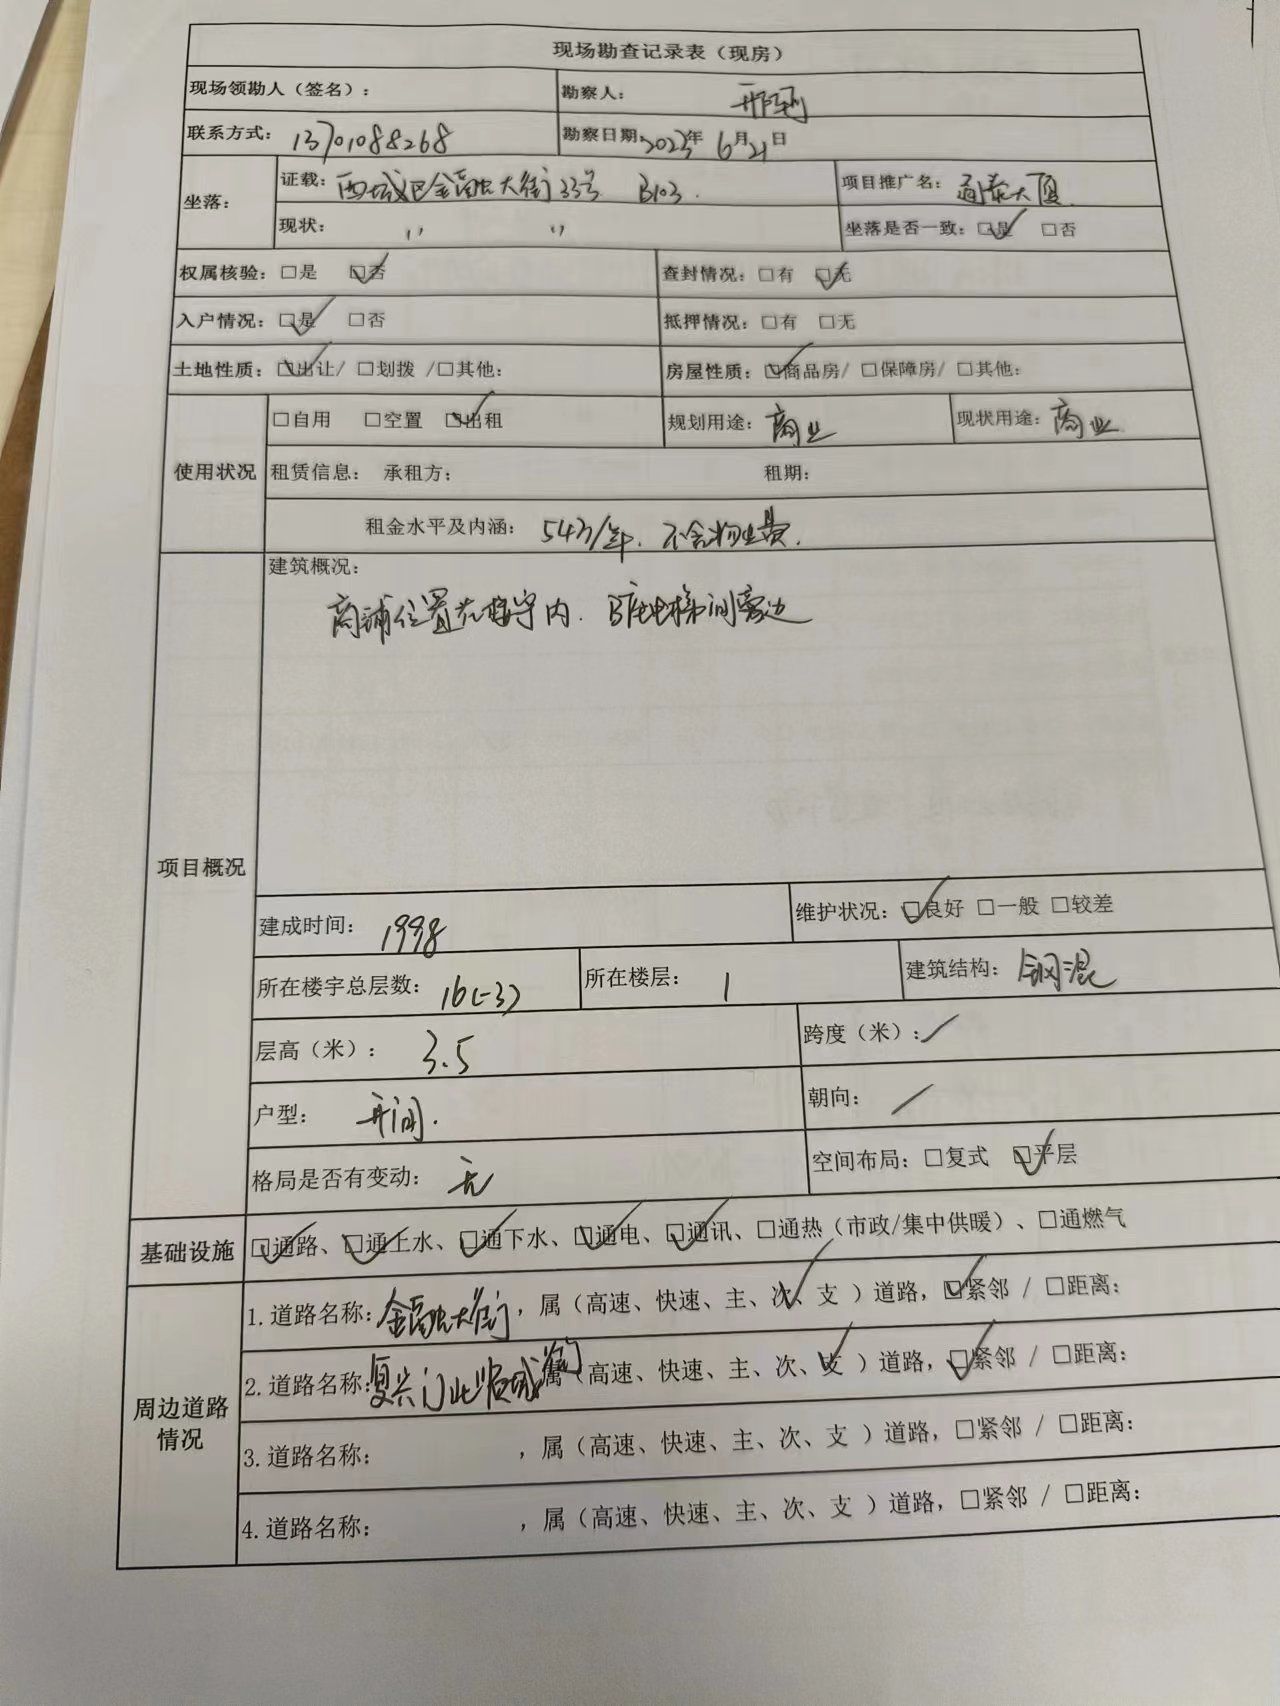 现场勘查记录表（现房）
现场领勘人（签名）： 勘察人：
联系方式：13701088268 勘察日期：2023年6月21日
坐落： 证载：西城区金融大街33号 B103. 项目推广名：通泰大厦
现状： 〃 〃 坐落是否一致：☑是 □否
权属核验：□是 ☑否 查封情况：□有 ☑无
入户情况：☑是 □否 抵押情况：□有 □无
土地性质：☑出让/ □划拨 /□其他： 房屋性质：☑商品房/ □保障房/ □其他：
使用状况 □自用 □空置 ☑出租 规划用途：商业 现状用途：商业
租赁信息： 承租方： 租期：
租金水平及内涵：54万/年. 不含物业费.
项目概况 建筑概况：
商铺位置在楼宇内. B座电梯间旁边
建成时间：1998 维护状况：☑良好 □一般 □较差
所在楼宇总层数：16(-3) 所在楼层：1 建筑结构：钢混
层高（米）：3.5 跨度（米）：/
户型：开间. 朝向：/
格局是否有变动：无 空间布局：□复式 ☑平层
基础设施 ☑通路、☑通上水、☑通下水、☑通电、☑通讯、□通热（市政/集中供暖）、□通燃气
周边道路情况 1.道路名称：金融大街，属（高速、快速、主、次、支 ）道路，☑紧邻 / □距离：
2.道路名称：复兴门北顺城街 属（高速、快速、主、次、支 ）道路，☑紧邻 / □距离：
3.道路名称： ，属（高速、快速、主、次、支 ）道路，□紧邻 / □距离：
4.道路名称： ，属（高速、快速、主、次、支 ）道路，□紧邻 / □距离：